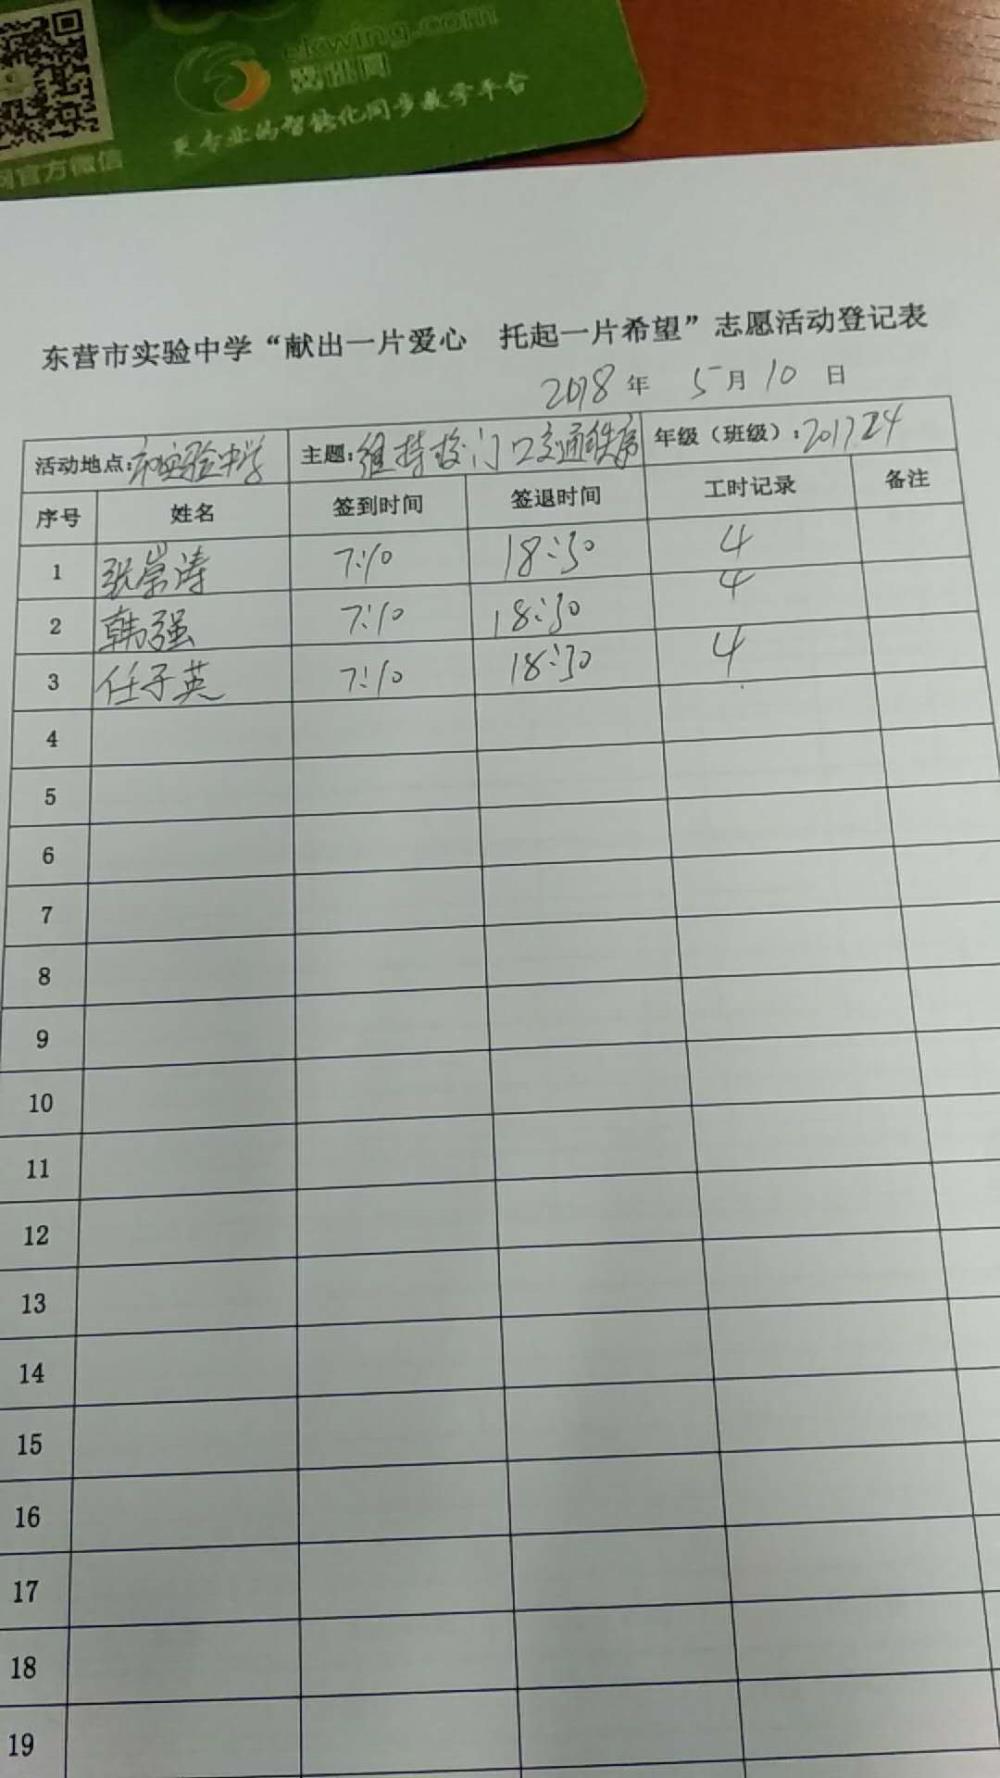 ekwing.com
翼课网
更专业的智能化同步教学平台
网官方微信
东营市实验中学“献出一片爱心 托起一片希望”志愿活动登记表
2018年 5月10日
活动地点:市实验中学 主题:维持校门口交通秩序 年级（班级）:2017级24
序号 姓名 签到时间 签退时间 工时记录 备注
1 张崇涛 7:10 18:30 4
2 韩强 7:10 18:30 4
3 任子英 7:10 18:30 4
4
5
6
7
8
9
10
11
12
13
14
15
16
17
18
19